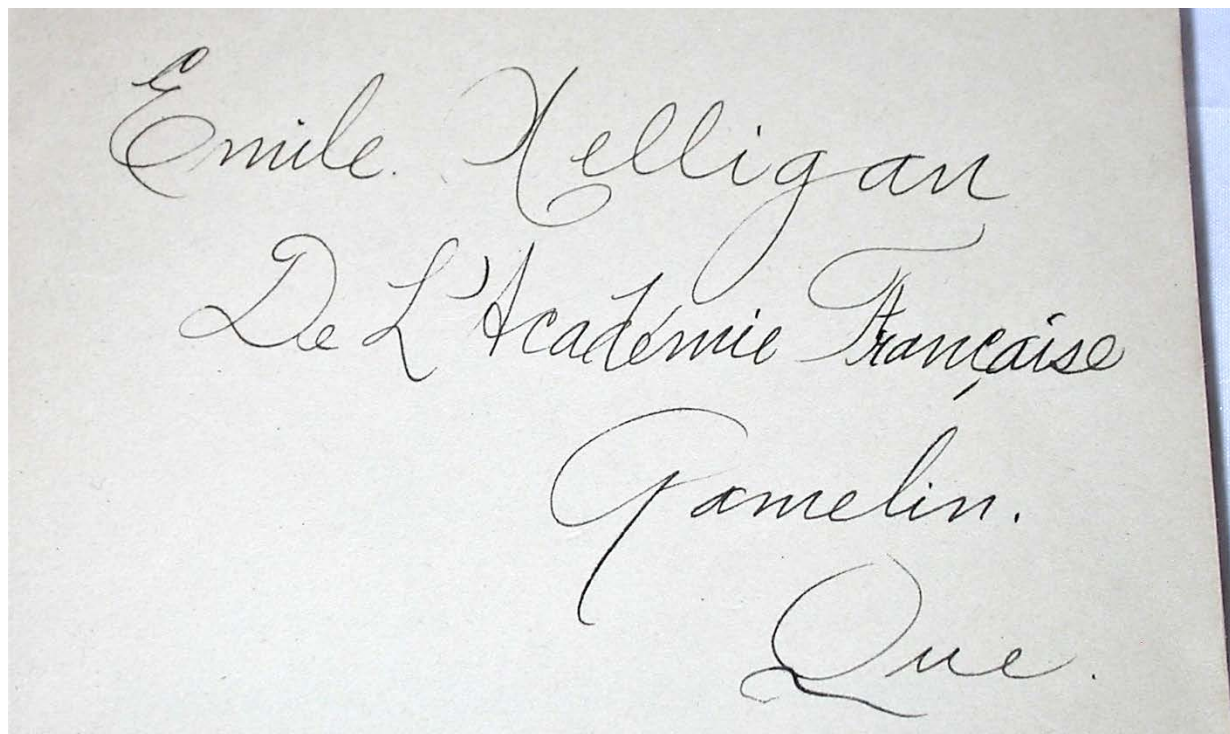 Emile. Nelligan
De L'Académie Française
Gamelin.
Que.